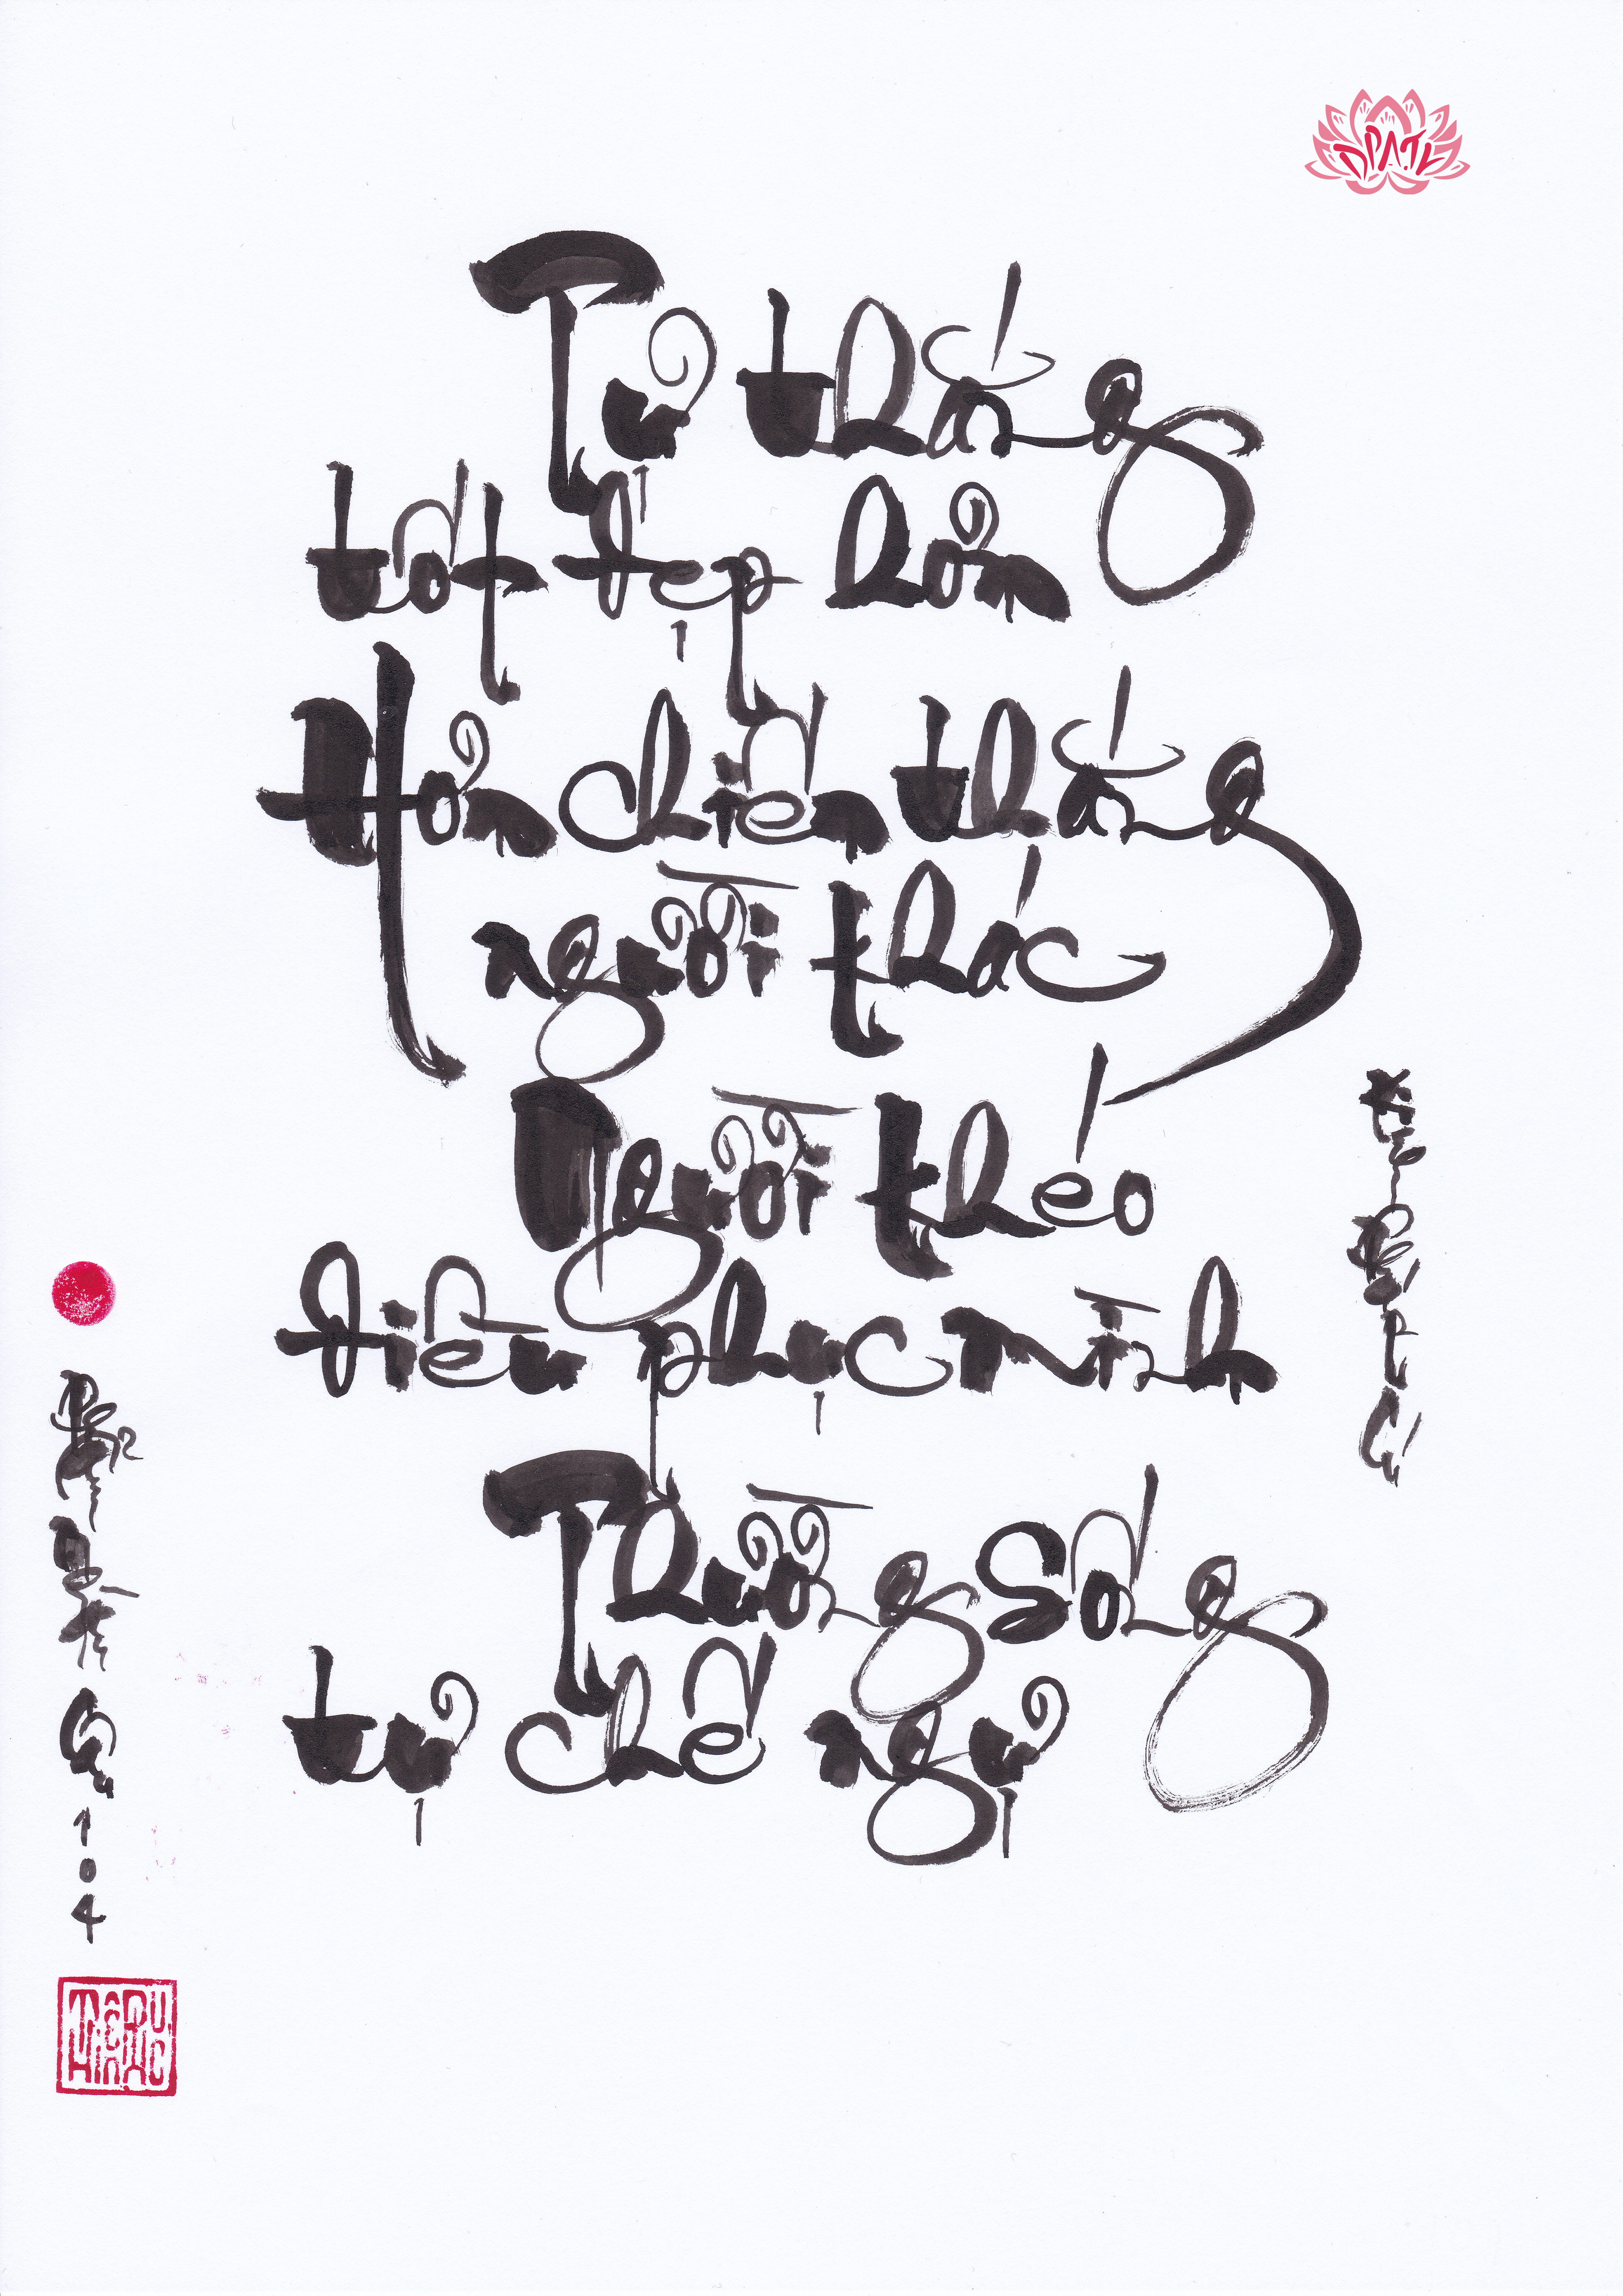 Tự thắng
tốt đẹp hơn
Hơn chiến thắng
người khác
Người khéo
điều phục mình
Thường sống
tự chế ngự
Kinh Pháp Cú
104